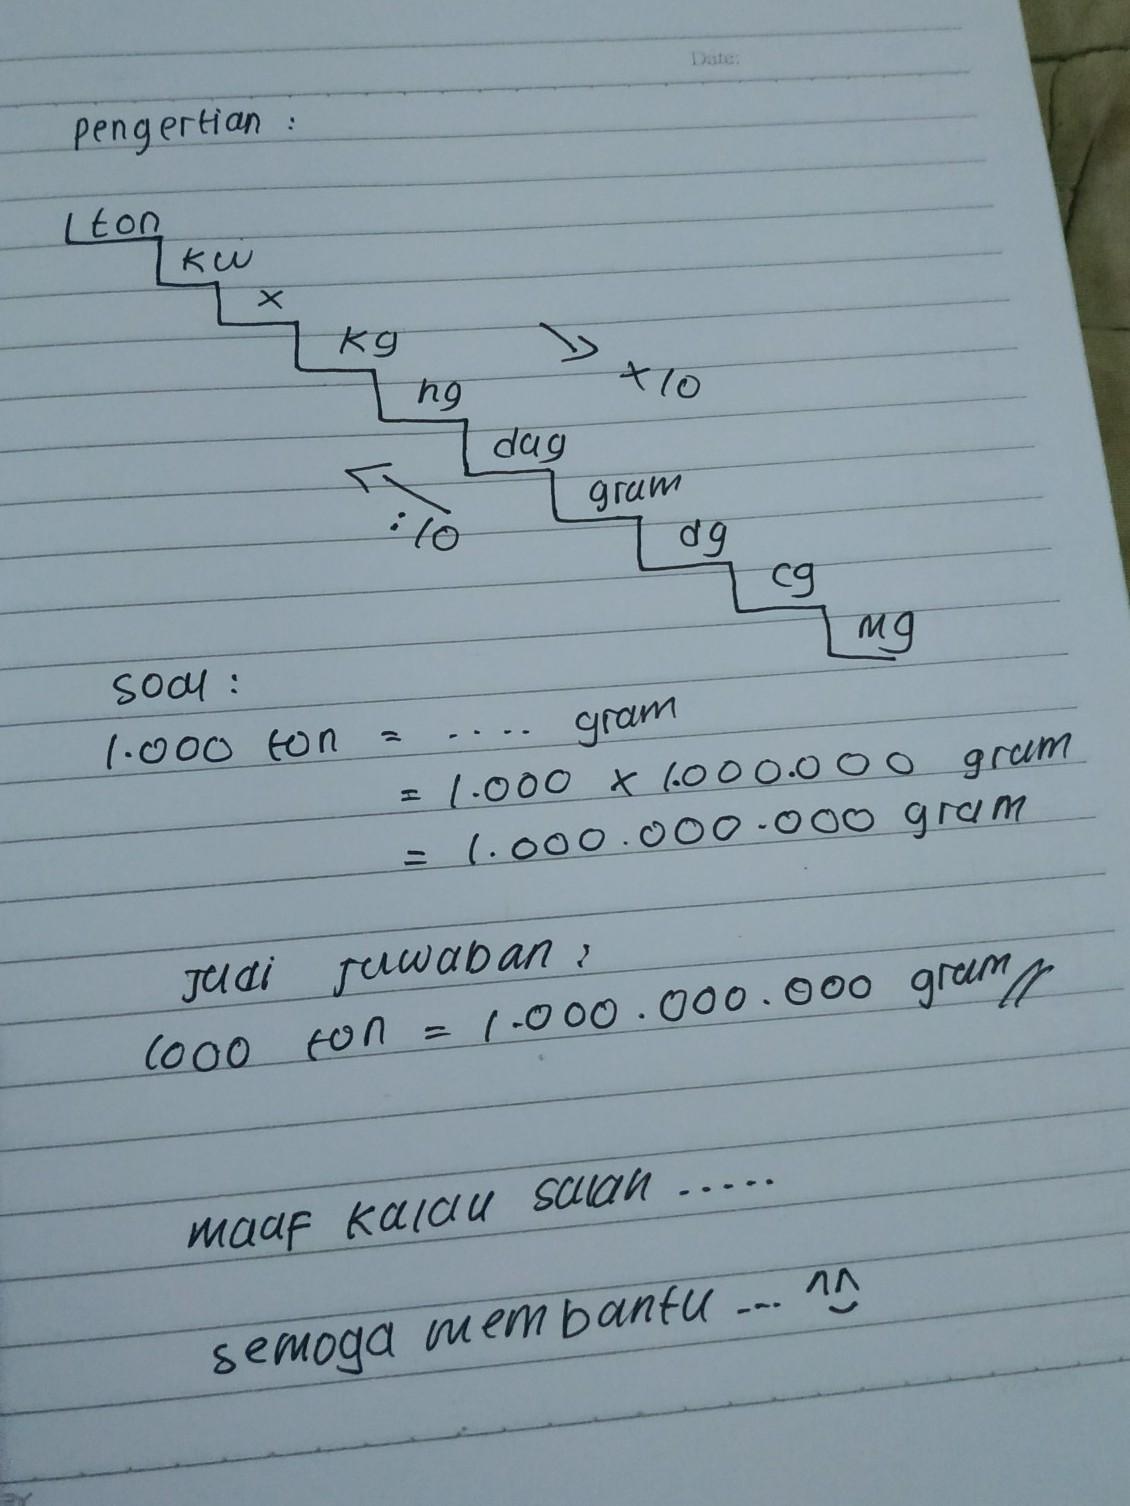 Date:
pengertian :
1 ton
kw
x
kg
hg
x10
dag
gram
:10
dg
cg
mg
soal :
1.000 ton = .... gram
= 1.000 x 1.000.000 gram
= 1.000.000.000 gram
Jadi jawaban :
1000 ton = 1.000.000.000 gram //
maaf kalau salah .....
semoga membantu --- ^^